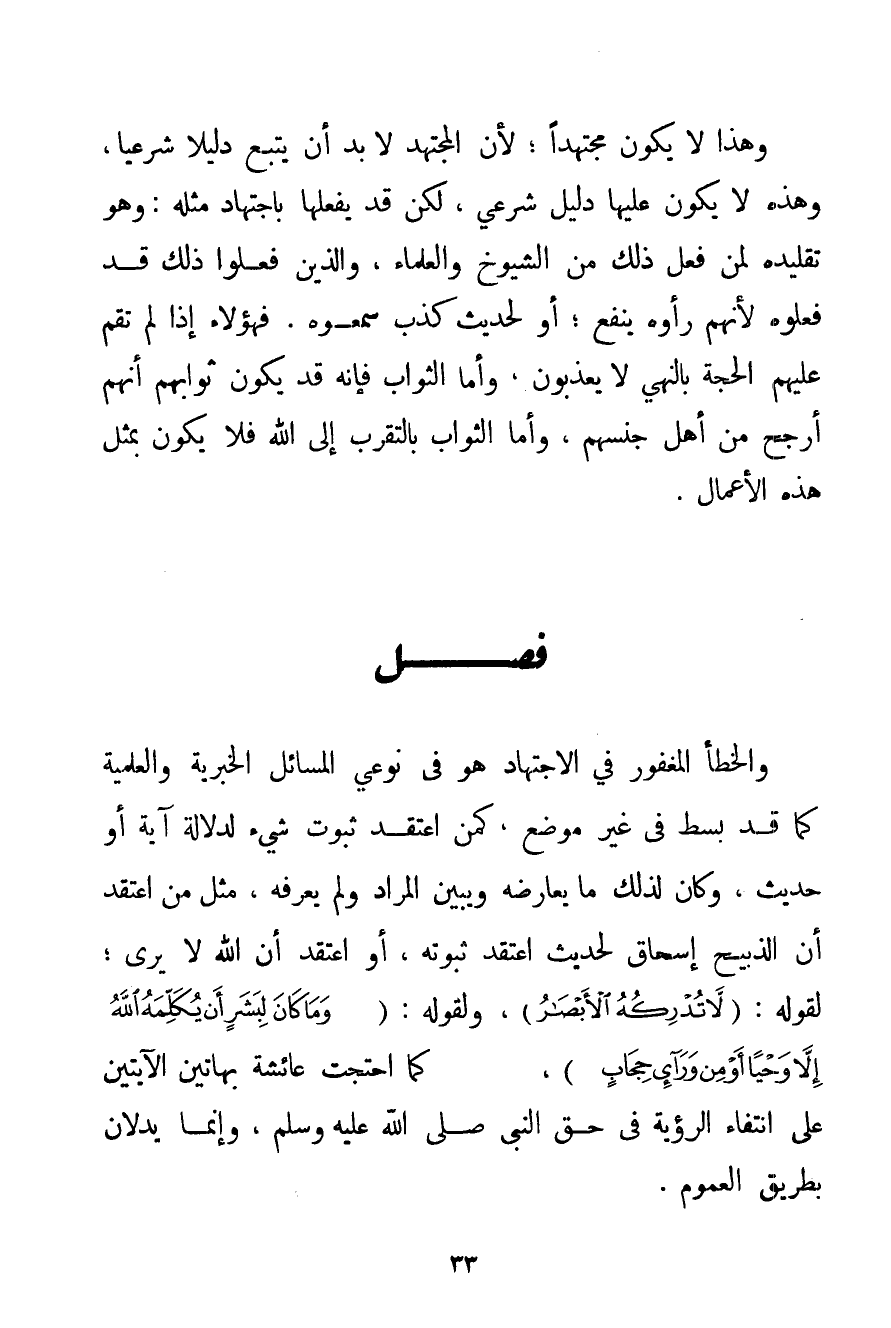 وهذا لا يكون مجتهداً ؛ لأن المجتهد لا بد أن يتبع دليلا شرعيا ،
وهذه لا يكون عليها دليل شرعي ، لكن قد يفعلها باجتهاد مثله : وهو
تقليده لمن فعل ذلك من الشيوخ والعلماء ، والذين فعلوا ذلك قد
فعلوه لأنهم رأوه ينفع ؛ أو لحديث كذب سمعوه . فهؤلاء إذا لم تقم
عليهم الحجة بالنهي لا يعذبون ، وأما الثواب فإنه قد يكون ثوابهم أنهم
أرجح من أهل جنسهم ، وأما الثواب بالتقرب إلى الله فلا يكون بمثل
هذه الأعمال .
فصل
والخطأ المغفور في الاجتهاد هو فى نوعي المسائل الخبرية والعلمية
كما قد بسط فى غير موضع ، كمن اعتقد ثبوت شيء لدلالة آية أو
حديث ، وكان لذلك ما يعارضه ويبين المراد ولم يعرفه ، مثل من اعتقد
أن الذبيح إسحاق لحديث اعتقد ثبوته ، أو اعتقد أن الله لا يرى ؛
لقوله : ( لَا تُدْرِكُهُ ٱلْأَبْصَٰرُ ) ، ولقوله : ( وَمَا كَانَ لِبَشَرٍ أَن يُكَلِّمَهُ ٱللَّهُ
إِلَّا وَحْيًا أَوْ مِن وَرَآيِٕ حِجَابٍ ) ، كما احتجت عائشة بهاتين الآيتين
على انتفاء الرؤية فى حق النبي صلى الله عليه وسلم ، وإنما يدلان
بطريق العموم .
٣٣